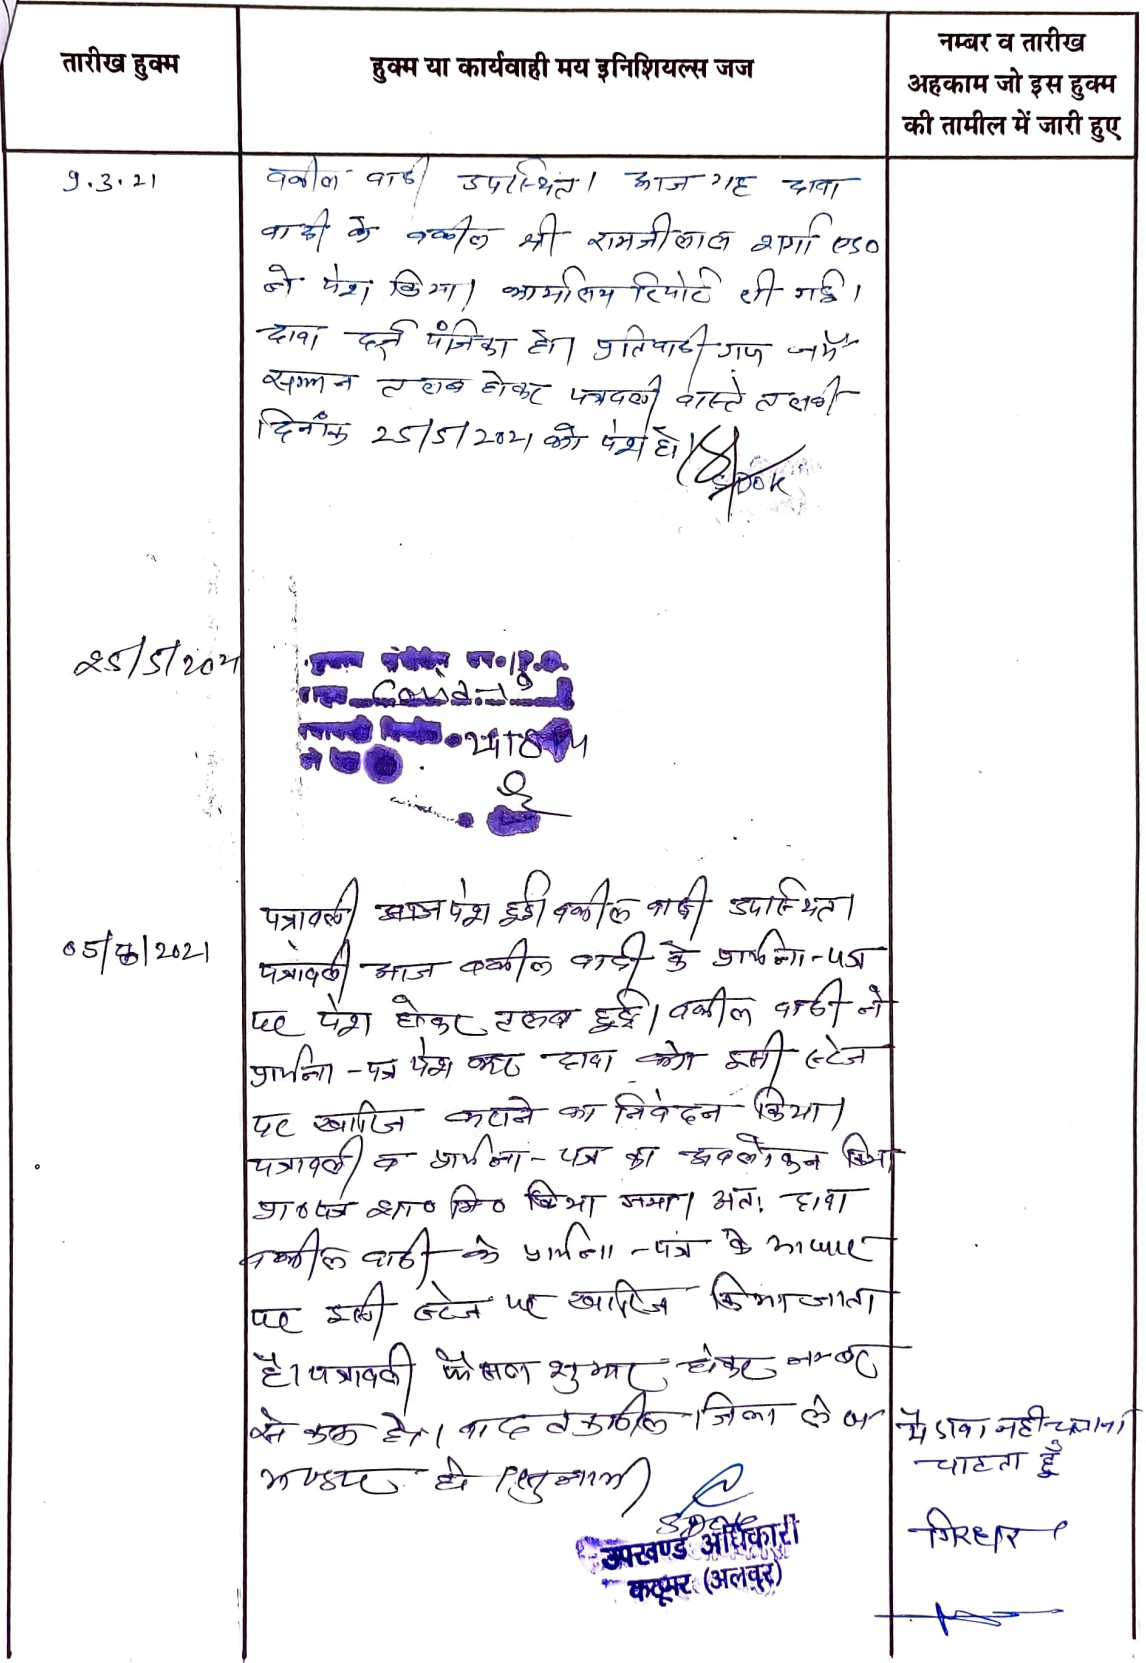 तारीख हुक्म
हुक्म या कार्यवाही मय इनिशियल्स जज
नम्बर व तारीख
अहकाम जो इस हुक्म
की तामील में जारी हुए
9.3.21
वकील वादी उपस्थित। आज यह दावा
वादी के वकील श्री रामजीलाल शर्मा एड०
ने पेश किया। रिपोर्ट ली गई।
दावा दर्ज पंजिका हो। प्रतिवादी गण जर्ये
सम्मन तलब होकर पत्रावली वास्ते तलबी
दिनांक 25/5/2021 को पेश हो।
SDOK
25/5/2021
पत्रावली आज पेश हुई। वकील वादी उपस्थित।
05/8/2021
पत्रावली आज वकील वादी के प्रार्थना-पत्र
पर पेश होकर तलब हुई। वकील वादी ने
प्रार्थना-पत्र पेश कर दावा को इसी स्टेज
पर खारिज कराने का निवेदन किया।
पत्रावली व प्रार्थना-पत्र का अवलोकन किया
प्रा०पत्र शा० मि० किया गया। अतः दावा
वकील वादी के प्रार्थना-पत्र के आधार
पर इसी स्टेज पर खारिज किया जाता
है। पत्रावली फैसल शुमार होकर नम्बर
से कम हो। बाद तकमील जिला लेख
भण्डार हो।
उपखण्ड अधिकारी
कठूमर (अलवर)
मैं दावा नहीं चलाना
चाहता हूँ
गिरधर